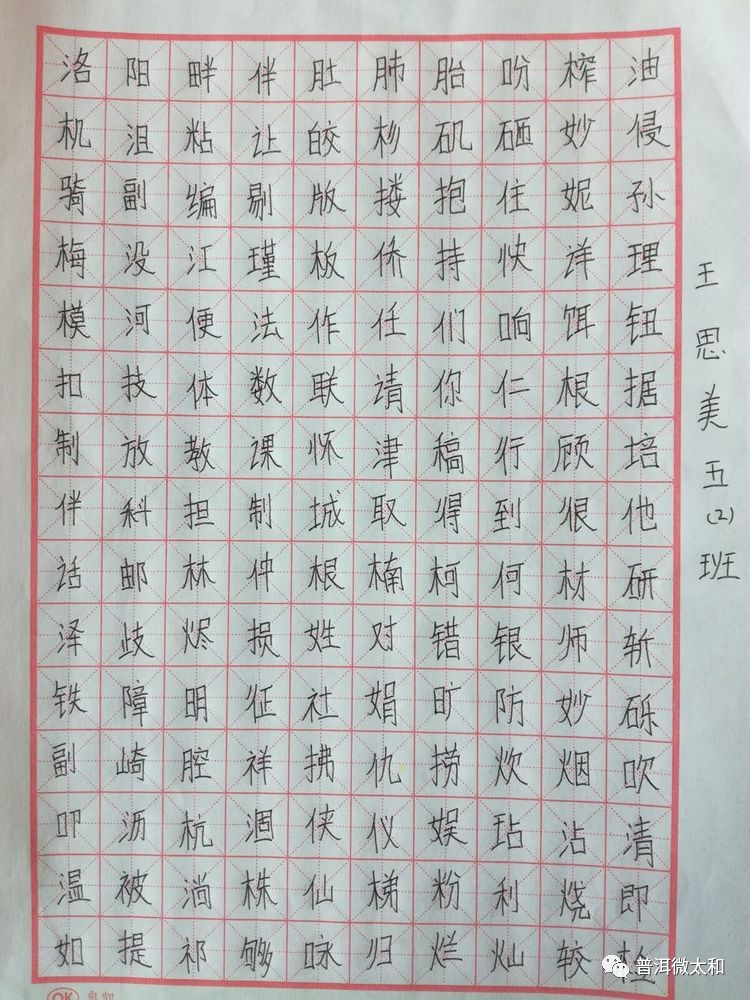 洛阳畔伴肚肺胎吩榨油
机沮粘让皎杉矶硒妙侵
骑副编剔版搂抱住妮孙
梅没江瑾板侨持快详理
模河便法作任们响饵钮
扣技体数联请你仁根据
制放教课怀津稿行顾培
伴科担制城取得到很他
话邮林仲根楠柯何材研
泽歧烬损姓对错银师斩
铁障明征社娟旷防妙砾
副崎腔祥拂仇捞炊烟吹
叩沥杭涸侠仪娱玷沾清
温被淌株仙梯粉利烧即
如提祁够咏归烂灿较
王思美五(2)班
普洱微太和
OK